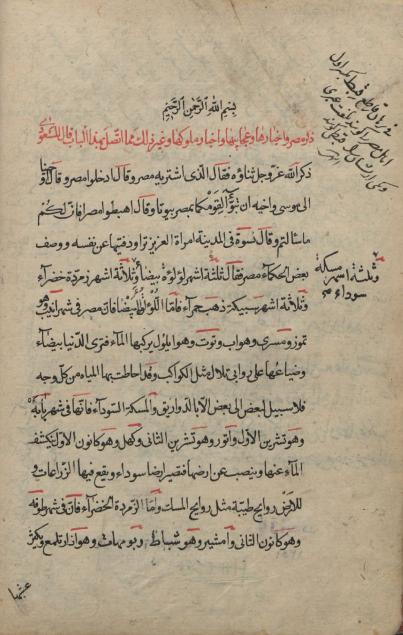 بسم الله الرحمن الرحيم
ذكر مصر واخبارها وعجايبها واخبار ملوكها وغير ذلك مما اتصل بهذا الباب قال المسعودي
ذكر الله عز وجل ثناؤه فقال الذى اشتريه من مصر وقال ادخلوا مصر وقال واوحينا
الى موسى واخيه ان تبوّآ لقومكما بمصر بيوتا وقال اهبطوا مصرا فان لكم
ما سئالتم وقال نسوة فى المدينة امراة العزيز تراود فتيها عن نفسه ووصف
بعض الحكماء مصر فقال ثلثة اشهر لؤلؤة بيضا وثلاثة اشهر زمردة خضرآء
وثلاثة اشهر سبيكة ذهب حمرآء فامّا اللؤلؤ البيضا فان مصر فى شهر ابيب وهو
تموز ومسرى وهو اب وتوت وهو ايلول يركبها المآء فترى الدّنيا بيضآء
وضياعها على روابى وتلال مثل الكواكب وقد احاطت بها المياه من كل وجه
فلا سبيل لبعض الى بعض الا بالذواريق والمسكة السّودآء فانّها فى شهر بابه
وهو تشرين الاول واتور وهو تشرين الثانى وكهك وهو كانون الاول تيكشف
المآء عنها وينصب عن ارضها فتصير ارضا سوداء ويقع فيها الزراعات و
للارض روايح طيبة مثل روايح المسك وامّا الزمردة الخضرآء فان فى شهر طوبه
وهو كانون الثانى وامشير وهو شباط وبرمهات وهو اذار تلمع ويكثر
وثلثة اشهر مسكة
سوداء صح
عشبها